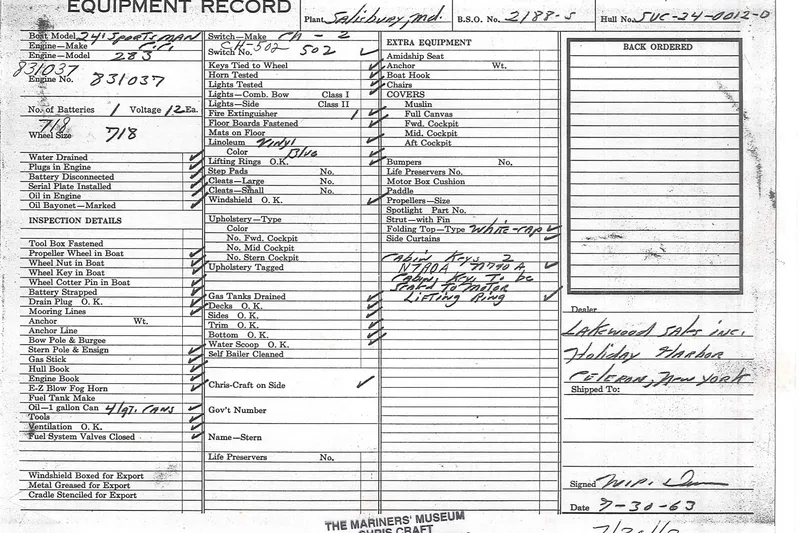 EQUIPMENT RECORD
Plant Salisbury, Md.
B.S.O. No. 2188-S
Hull No. SVC-24-0012-D
Boat Model 24' Sportsman
Engine—Make C.C.
Engine—Model 283
831037
Engine No. 831037
No. of Batteries 1 Voltage 12 Ea.
718
Wheel Size 718
Water Drained ✓
Plugs in Engine ✓
Battery Disconnected ✓
Serial Plate Installed ✓
Oil in Engine ✓
Oil Bayonet—Marked ✓
INSPECTION DETAILS
Tool Box Fastened
Propeller Wheel in Boat ✓
Wheel Nut in Boat ✓
Wheel Key in Boat ✓
Wheel Cotter Pin in Boat ✓
Battery Strapped ✓
Drain Plug O. K. ✓
Mooring Lines ✓
Anchor Wt.
Anchor Line
Bow Pole & Burgee
Stern Pole & Ensign ✓
Gas Stick ✓
Hull Book ✓
Engine Book ✓
E-Z Blow Fog Horn ✓
Fuel Tank Make
Oil—1 gallon Can 4 1qt. cans ✓
Tools ✓
Ventilation O. K. ✓
Fuel System Valves Closed ✓
Windshield Boxed for Export
Metal Greased for Export
Cradle Stenciled for Export
Switch—Make CH - 2
CH-502
Switch No. 502 ✓
Keys Tied to Wheel ✓
Horn Tested ✓
Lights Tested ✓
Lights—Comb. Bow Class I ✓
Lights—Side Class II
Fire Extinguisher 1 ✓
Floor Boards Fastened ✓
Mats on Floor
Linoleum Vinyl ✓
Color Blue ✓
Lifting Rings O.K. ✓
Step Pads No.
Cleats—Large No.
Cleats—Small No.
Windshield O. K. ✓
Upholstery—Type
Color
No. Fwd. Cockpit
No. Mid Cockpit
No. Stern Cockpit
Upholstery Tagged
Gas Tanks Drained ✓
Decks O. K. ✓
Sides O. K. ✓
Trim O. K. ✓
Bottom O. K. ✓
Water Scoop O. K. ✓
Self Bailer Cleaned
Chris-Craft on Side ✓
Gov't Number
Name—Stern
Life Preservers No.
EXTRA EQUIPMENT
Amidship Seat
Anchor Wt.
Boat Hook
Chairs
COVERS
Muslin
Full Canvas
Fwd. Cockpit
Mid. Cockpit
Aft Cockpit
Bumpers No.
Life Preservers No.
Motor Box Cushion
Paddle
Propellers—Size
Spotlight Part No.
Strut—with Fin
Folding Top—Type White-cap ✓
Side Curtains ✓
Cabin Keys 2
✓
Cabin Keys to be
to motor
Lifting Ring ✓
BACK ORDERED
Dealer
Lakewood Sales Inc.
Holiday Harbor
Celeron, New York
Shipped To:
Signed
Date 7-30-63
THE MARINERS' MUSEUM
CHRIS CRAFT